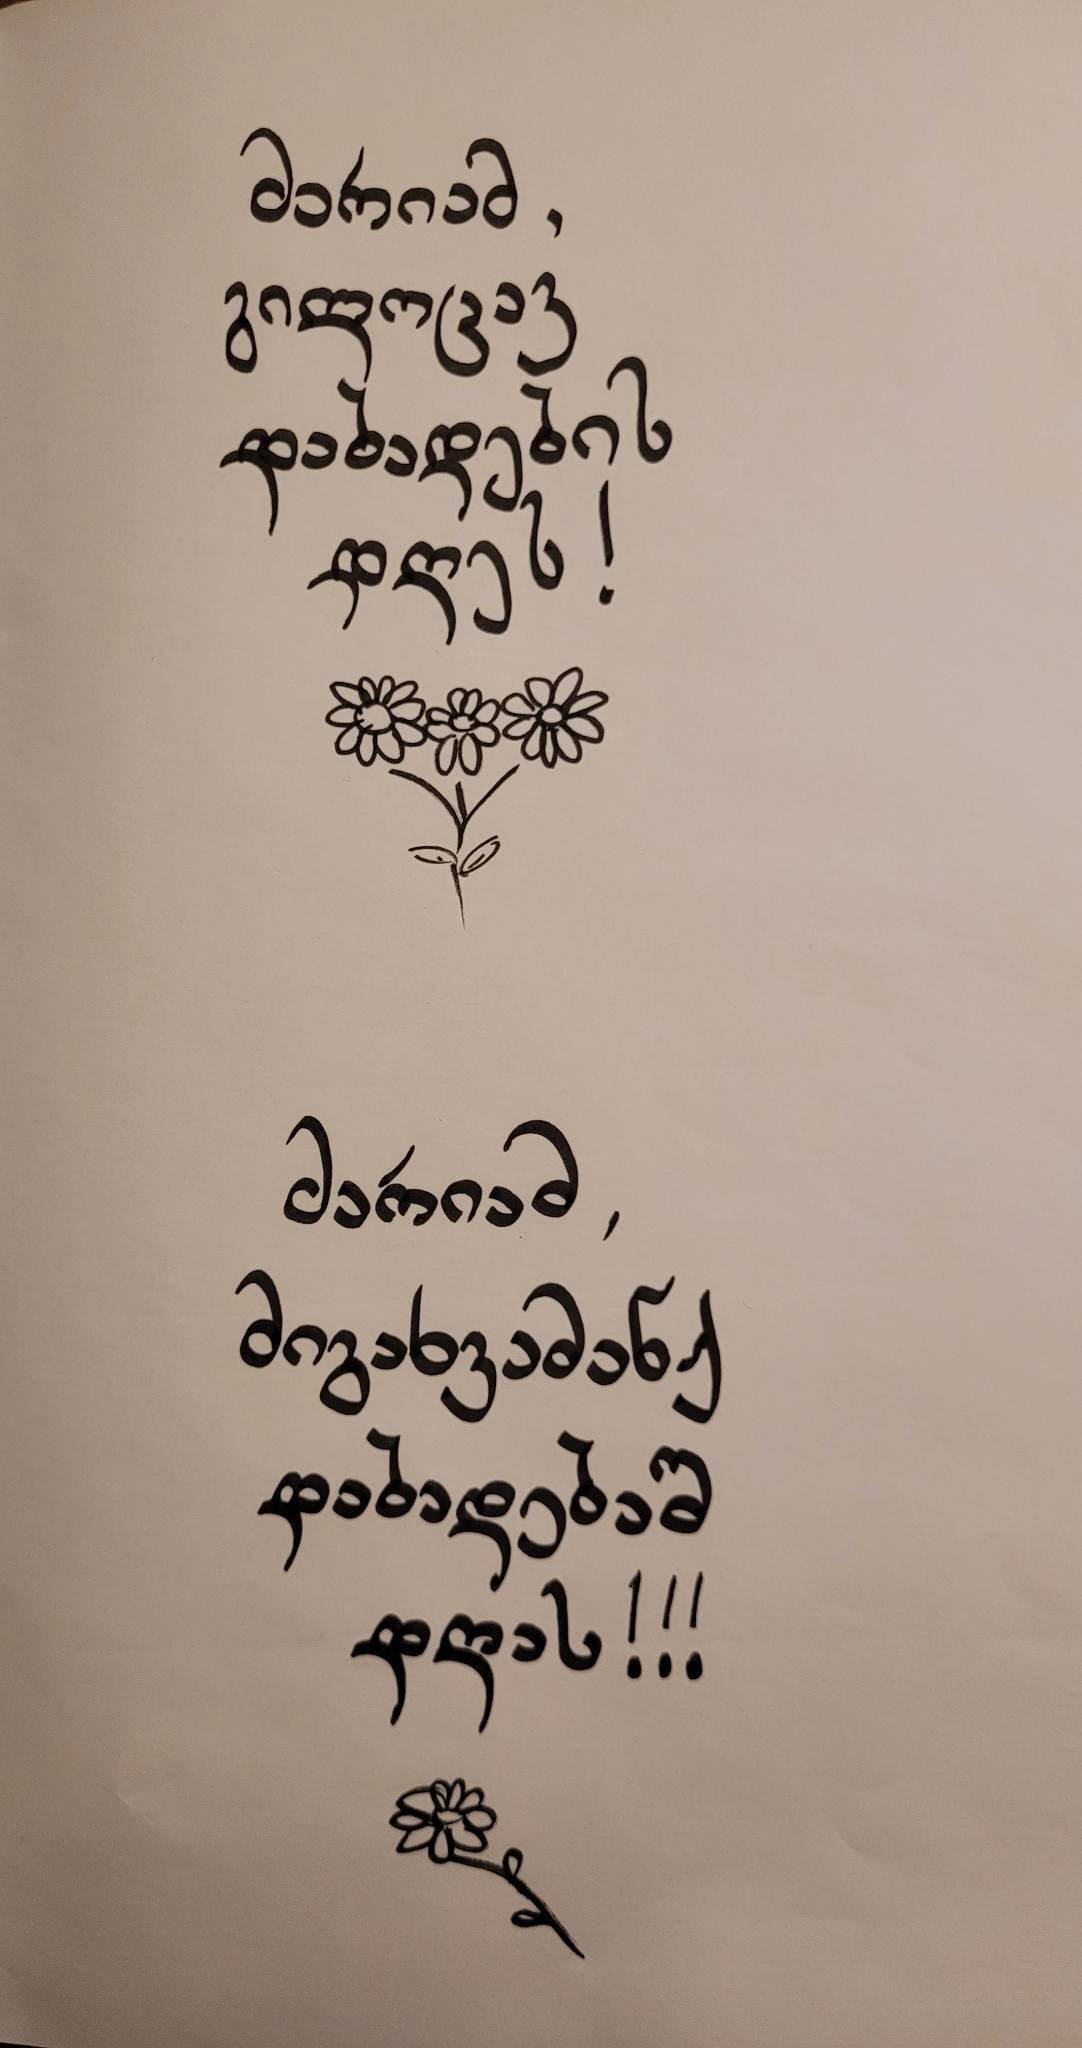 მარიამ,
გილოცავ
დაბადების
დღეს!
მარიამ,
მიგახვამანქ
დაბადებაშ
დღას!!!